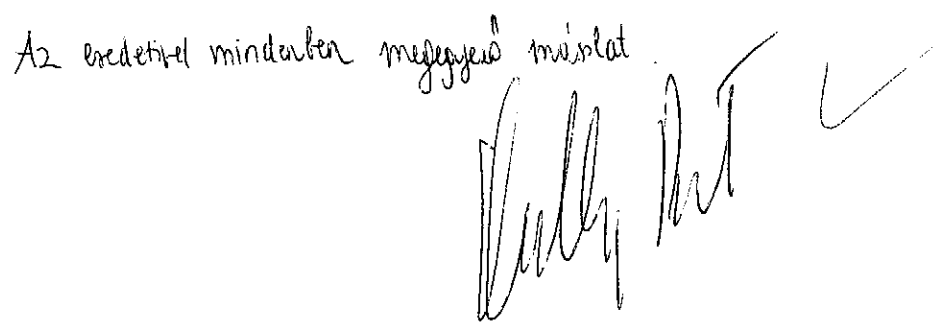 Az eredetivel mindenben megegyező máslat.